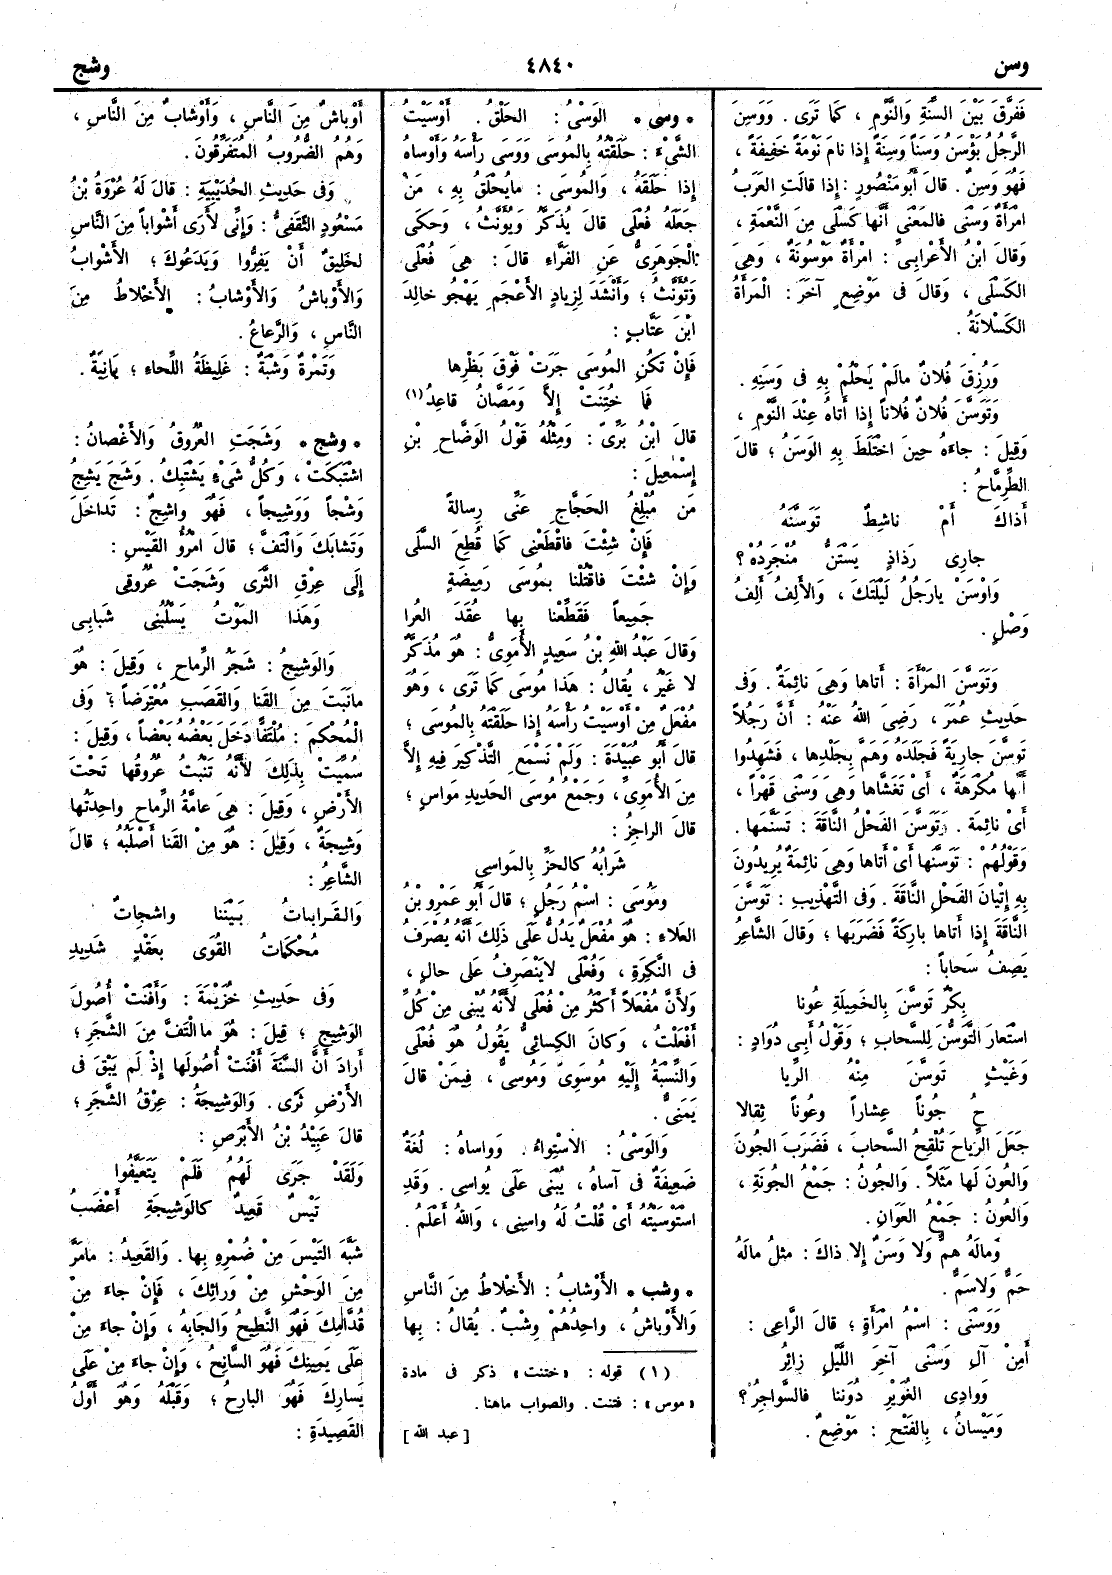 وسن
٤٨٤٠
وشج
فَفَرَّقَ بَيْنَ السِّنَةِ وَالنَّوْمِ ، كَمَا تَرَى . وَوَسِنَ
الرَّجُلُ يَوْسَنُ وَسَناً وَسِنَةً إِذَا نَامَ نَوْمَةً خَفِيفَةً ،
فَهُوَ وَسِنٌ . قَالَ أَبُو مَنْصُورٍ : إِذَا قَالَتِ الْعَرَبُ
امْرَأَةٌ وَسْنَى فَالمَعْنَى أَنَّهَا كَسْلَى مِنَ النَّعْمَةِ ،
وَقَالَ ابْنُ الأَعْرَابِىِّ : امْرَأَةٌ مَوْسُونَةٌ ، وَهِىَ
الكَسْلَى ، وَقَالَ فِى مَوْضِعٍ آخَرَ : الْمَرْأَةُ
الكَسْلَانَةُ .
وَرُزِقَ فُلَانٌ مالَمْ يَحْلُمْ بِهِ فِى وَسَنِهِ .
وَتَوَسَّنَ فُلَانٌ فُلَاناً إِذَا أَتَاهُ عِنْدَ النَّوْمِ ،
وَقِيلَ : جاءَهُ حِينَ اخْتَلَطَ بِهِ الْوَسَنُ ؛ قالَ
الطِّرِمَّاحُ :
أَذَاكَ أَمْ نَاشِطٌ تَوَسَّنَهُ
جَارِى رَذَاذٍ يَسْتَنُّ مُنْجَرِدُهْ ؟
وَاوْسَنْ يارَجُلُ لَيْلَتَكَ ، وَالأَلِفُ أَلِفُ
وَصْلٍ .
وَتَوَسَّنَ المَرْأَةَ : أَتَاها وَهِىَ نَائِمَةٌ . وَفِى
حَدِيثِ عُمَرَ ، رَضِىَ اللهُ عَنْهُ : أَنَّ رَجُلاً
تَوَسَّنَ جَارِيَةً فَجَلَدَهُ وَهَمَّ بِجَلْدِها ، فَشَهِدُوا
أَنَّها مُكْرَهَةٌ ، أَىْ تَغَشَّاها وَهِىَ وَسْنَى قَهْراً ،
أَىْ نائِمَة . وَتَوَسَّنَ الفَحْلُ النَّاقَةَ : تَسَنَّمَها .
وَقَوْلُهُمْ : تَوَسَّنَها أَىْ أَتَاها وَهِىَ نائِمَةٌ يُرِيدُونَ
بِهِ إِتْيانَ الفَحْلِ النَّاقَةَ . وَفِى التَّهْذِيبِ : تَوَسَّنَ
النَّاقَةَ إِذَا أَتَاها بارِكَةً فَضَرَبَها ؛ وَقالَ الشَّاعِرُ
يَصِفُ سَحاباً :
بِكْرٌ تَوَسَّنَ بِالخَمِيلَةِ عُونا
اسْتَعارَ التَّوَسُّنَ لِلسَّحابِ ؛ وَقَوْلُ أَبِى دُوَادٍ :
وَغَيْثٍ تَوَسَّنَ مِنْهُ الرِّيا
حُ جُوناً عِشاراً وعُوناً ثِقالا
جَعَلَ الرِّياحَ تُلْقِحُ السَّحابَ ، فَضَرَبَ الجُونَ
وَالعُونَ لَها مَثَلاً . وَالجُونُ : جَمْعُ الجُونَةِ ،
وَالعُونُ : جَمْعُ العَوَانِ .
وَمالَهُ هَمٌّ وَلَا وَسَنٌ إِلَّا ذاكَ : مثلُ مالَهُ
حَمٌّ وَلاسَمٌّ .
وَوَسْنَى : اسْمُ امْرَأَةٍ ؛ قالَ الرَّاعِى :
أَمِنْ آلِ وَسْنَى آخِرَ اللَّيْلِ زائِرُ
وَوادِى الغُوَيْرِ دُونَنا فالسَّواجِرُ ؟
وَمَيْسانُ ، بِالفَتْحِ : مَوْضِعٌ .
* وسى * الوَسْىُ : الحَلْقُ . أَوْسَيْتُ
الشَّىْءَ : حَلَقْتَهُ بِالمُوسَى وَوَسَى رَأْسَهُ وَأَوْساه
إِذا حَلَقَهُ ، وَالمُوسَى : مايُحْلَقُ بِهِ ، مَنْ
جَعَلَهُ فُعْلَى قالَ يُذَكَّرُ وَيُؤَنَّثُ ، وَحَكَى
الْجَوهَرِىُّ عَنِ الفَرَّاءِ قالَ : هِىَ فُعْلَى
وَتُؤَنَّثُ ؛ وَأَنْشَدَ لِزِيادٍ الأَعْجَمِ يَهْجُو خالِدَ
ابْنَ عَتَّابٍ :
فَإِنْ تَكُنِ المُوسَى جَرَتْ فَوْقَ بَظْرِها
فَمَا خُتِنَتْ إِلَّا وَمَصَّانُ قاعِدُ (١)
قالَ ابْنُ بَرِّىّ : وَمِثْلُهُ قَوْلُ الوَضَّاحِ بْنِ
إِسْمٰعِيلَ :
مَن مُبْلِغُ الحَجَّاجِ عَنِّى رِسالةً
فَإِنْ شِئْتَ فاقْطَعْنِى كَمَا قُطِعَ السَّلَى
وَإِنْ شِئْتَ فاقْتُلْنا بِمُوسَى رَمِيضَةٍ
جَمِيعاً فَقَطِّعْنا بِها عُقَدَ العُرا
وَقالَ عَبْدُ اللهِ بْنُ سَعِيدٍ الأُمَوِىُّ : هُوَ مُذَكَّرٌ
لا غَيْرُ ، يُقالُ : هٰذا مُوسَى كَمَا تَرَى ، وَهُوَ
مُفْعَلٌ مِنْ أَوْسَيْتُ رَأْسَهُ إِذا حَلَقْتَهُ بِالمُوسَى ؛
قالَ أَبُو عُبَيْدَةَ : وَلَمْ نَسْمَعِ التَّذْكِيرَ فِيهِ إِلَّا
مِنَ الأُمَوِىِّ ، وَجَمْعُ مُوسَى الحَدِيدِ مَواسٍ ؛
قالَ الراجِزُ :
شَرابُهُ كالحَزِّ بِالمَواسِى
وَمُوسَى : اسْمُ رَجُلٍ ؛ قالَ أَبُو عَمْرِو بْنُ
العَلاءِ : هُوَ مُفْعَلٌ يَدُلُّ عَلَى ذٰلِكَ أَنَّهُ يُصْرَفُ
فِى النَّكِرَةِ ، وَفُعْلَى لايَنْصَرِفُ عَلَى حالٍ ،
وَلأَنَّ مُفْعَلاً أَكْثَرُ مِنْ فُعْلَى لأَنَّهُ يُبْنَى مِنْ كُلِّ
أَفْعَلْتُ ، وَكانَ الكِسائِىُّ يَقُولُ هُوَ فُعْلَى
وَالنِّسْبَةُ إِلَيْهِ مُوسَوِىٌّ وَمُوسِىٌّ ، فِيمَنْ قالَ
يَمَنِىٌّ .
وَالْوَسْىُ : الاسْتِواءُ . وَوَاساهُ : لُغَةٌ
ضَعِيفَةٌ فِى آساهُ ، يُبْنَى عَلَى يُواسِى . وَقَدِ
اسْتَوْسَيْتُهُ أَىْ قُلْتُ لَهُ واسِنِى ، وَاللهُ أَعْلَمُ .
* وشب * الأَوْشابُ : الأَخْلاطُ مِنَ النَّاسِ
وَالأَوْباشُ ، واحِدُهُمْ وِشْبٌ . يُقالُ : بِها
(١) قوله : «ختنت» ذكر فى مادة
«موس» : فتنت . والصواب ماهنا .
[عبد الله]
أَوْباشٌ مِنَ النَّاسِ ، وَأَوْشابٌ مِنَ النَّاسِ ،
وَهُمُ الضُّرُوبُ المُتَفَرِّقُونَ .
وَفِى حَدِيثِ الحُدَيْبِيَةِ : قالَ لَهُ عُرْوَةُ بْنُ
مَسْعُودٍ الثَّقَفِىُّ : وَإِنِّى لأَرَى أَشْواباً مِنَ النَّاسِ
لخَلِيقٌ أَنْ يَفِرُّوا وَيَدَعُوكَ ؛ الأَشْوابُ
وَالأَوْباشُ وَالأَوْشابُ : الأَخْلاطُ مِنَ
النَّاسِ ، وَالرَّعاعُ .
وَتَمْرَةٌ وَشْبَةٌ : غَلِيظَةُ اللِّحاءِ ؛ يَمانِيَةٌ .
* وشج * وَشَجَتِ العُرُوقُ وَالأَغْصانُ :
اشْتَبَكَتْ ، وَكُلُّ شَىْءٍ يَشْتَبِكُ . وَشَجَ يَشِجُ
وَشْجاً وَوَشِيجاً ، فَهُوَ واشِجٌ : تَداخَلَ
وَتَشابَكَ وَالْتَفَّ ؛ قالَ امْرُؤُ القَيْسِ :
إِلَى عِرْقِ الثَّرَى وَشَجَتْ عُرُوقِى
وَهٰذا المَوْتُ يَسْلُبُنِى شَبابِى
وَالوَشِيجُ : شَجَرُ الرِّماحِ ، وَقِيلَ : هُوَ
مانَبَتَ مِنَ القَنا وَالقَصَبِ مُعْتَرِضاً ؛ وَفِى
الْمُحْكَمِ : مُلْتَفًّا دَخَلَ بَعْضُهُ بَعْضاً ، وَقِيلَ :
سُمِّيَتْ بِذٰلِكَ لأَنَّهُ تَنْبُتُ عُرُوقُها تَحْتَ
الأَرْضِ ، وَقِيلَ : هِىَ عامَّةُ الرِّماحِ واحِدَتُها
وَشِيجَةٌ ، وَقِيلَ : هُوَ مِنَ القَنا أَصْلَبُهُ ؛ قالَ
الشَّاعِرُ :
وَالقَراباتُ بَيْنَنا واشِجاتٌ
مُحْكَماتُ القُوَى بِعَقْدٍ شَدِيدِ
وَفِى حَدِيثِ خُزَيْمَةَ : وَأَفْنَتْ أُصُولَ
الوَشِيجِ ؛ قِيلَ : هُوَ ما الْتَفَّ مِنَ الشَّجَرِ ؛
أَرادَ أَنَّ السَّنَةَ أَفْنَتْ أُصُولَها إِذْ لَمْ يَبْقَ فِى
الأَرْضِ ثَرًى . وَالوَشِيجَةُ : عِرْقُ الشَّجَرِ ؛
قالَ عَبِيدُ بْنُ الأَبْرَصِ :
وَلَقَدْ جَرَى لَهُمُ فَلَمْ يَتَعَيَّفُوا
تَيْسٌ قَعِيدٌ كالوَشِيجَةِ أَعْضَبُ
شَبَّهَ التَّيْسَ مِنْ ضُمْرِهِ بِها . وَالقَعِيدُ : مامَرَّ
مِنَ الوَحْشِ مِنْ وَرائِكَ ، فَإِنْ جاءَ مِنْ
قُدَّامِكَ فَهُوَ النَّطِيحُ وَالجابِهُ ، وَإِنْ جاءَ مِنْ
عَلَى يَمِينِكَ فَهُوَ السانِحُ ، وَإِنْ جاءَ مِنْ عَلَى
يَسارِكَ فَهُوَ البارِحُ ؛ وَقَبْلَهُ وَهُوَ أَوَّلُ
القَصِيدَةِ :